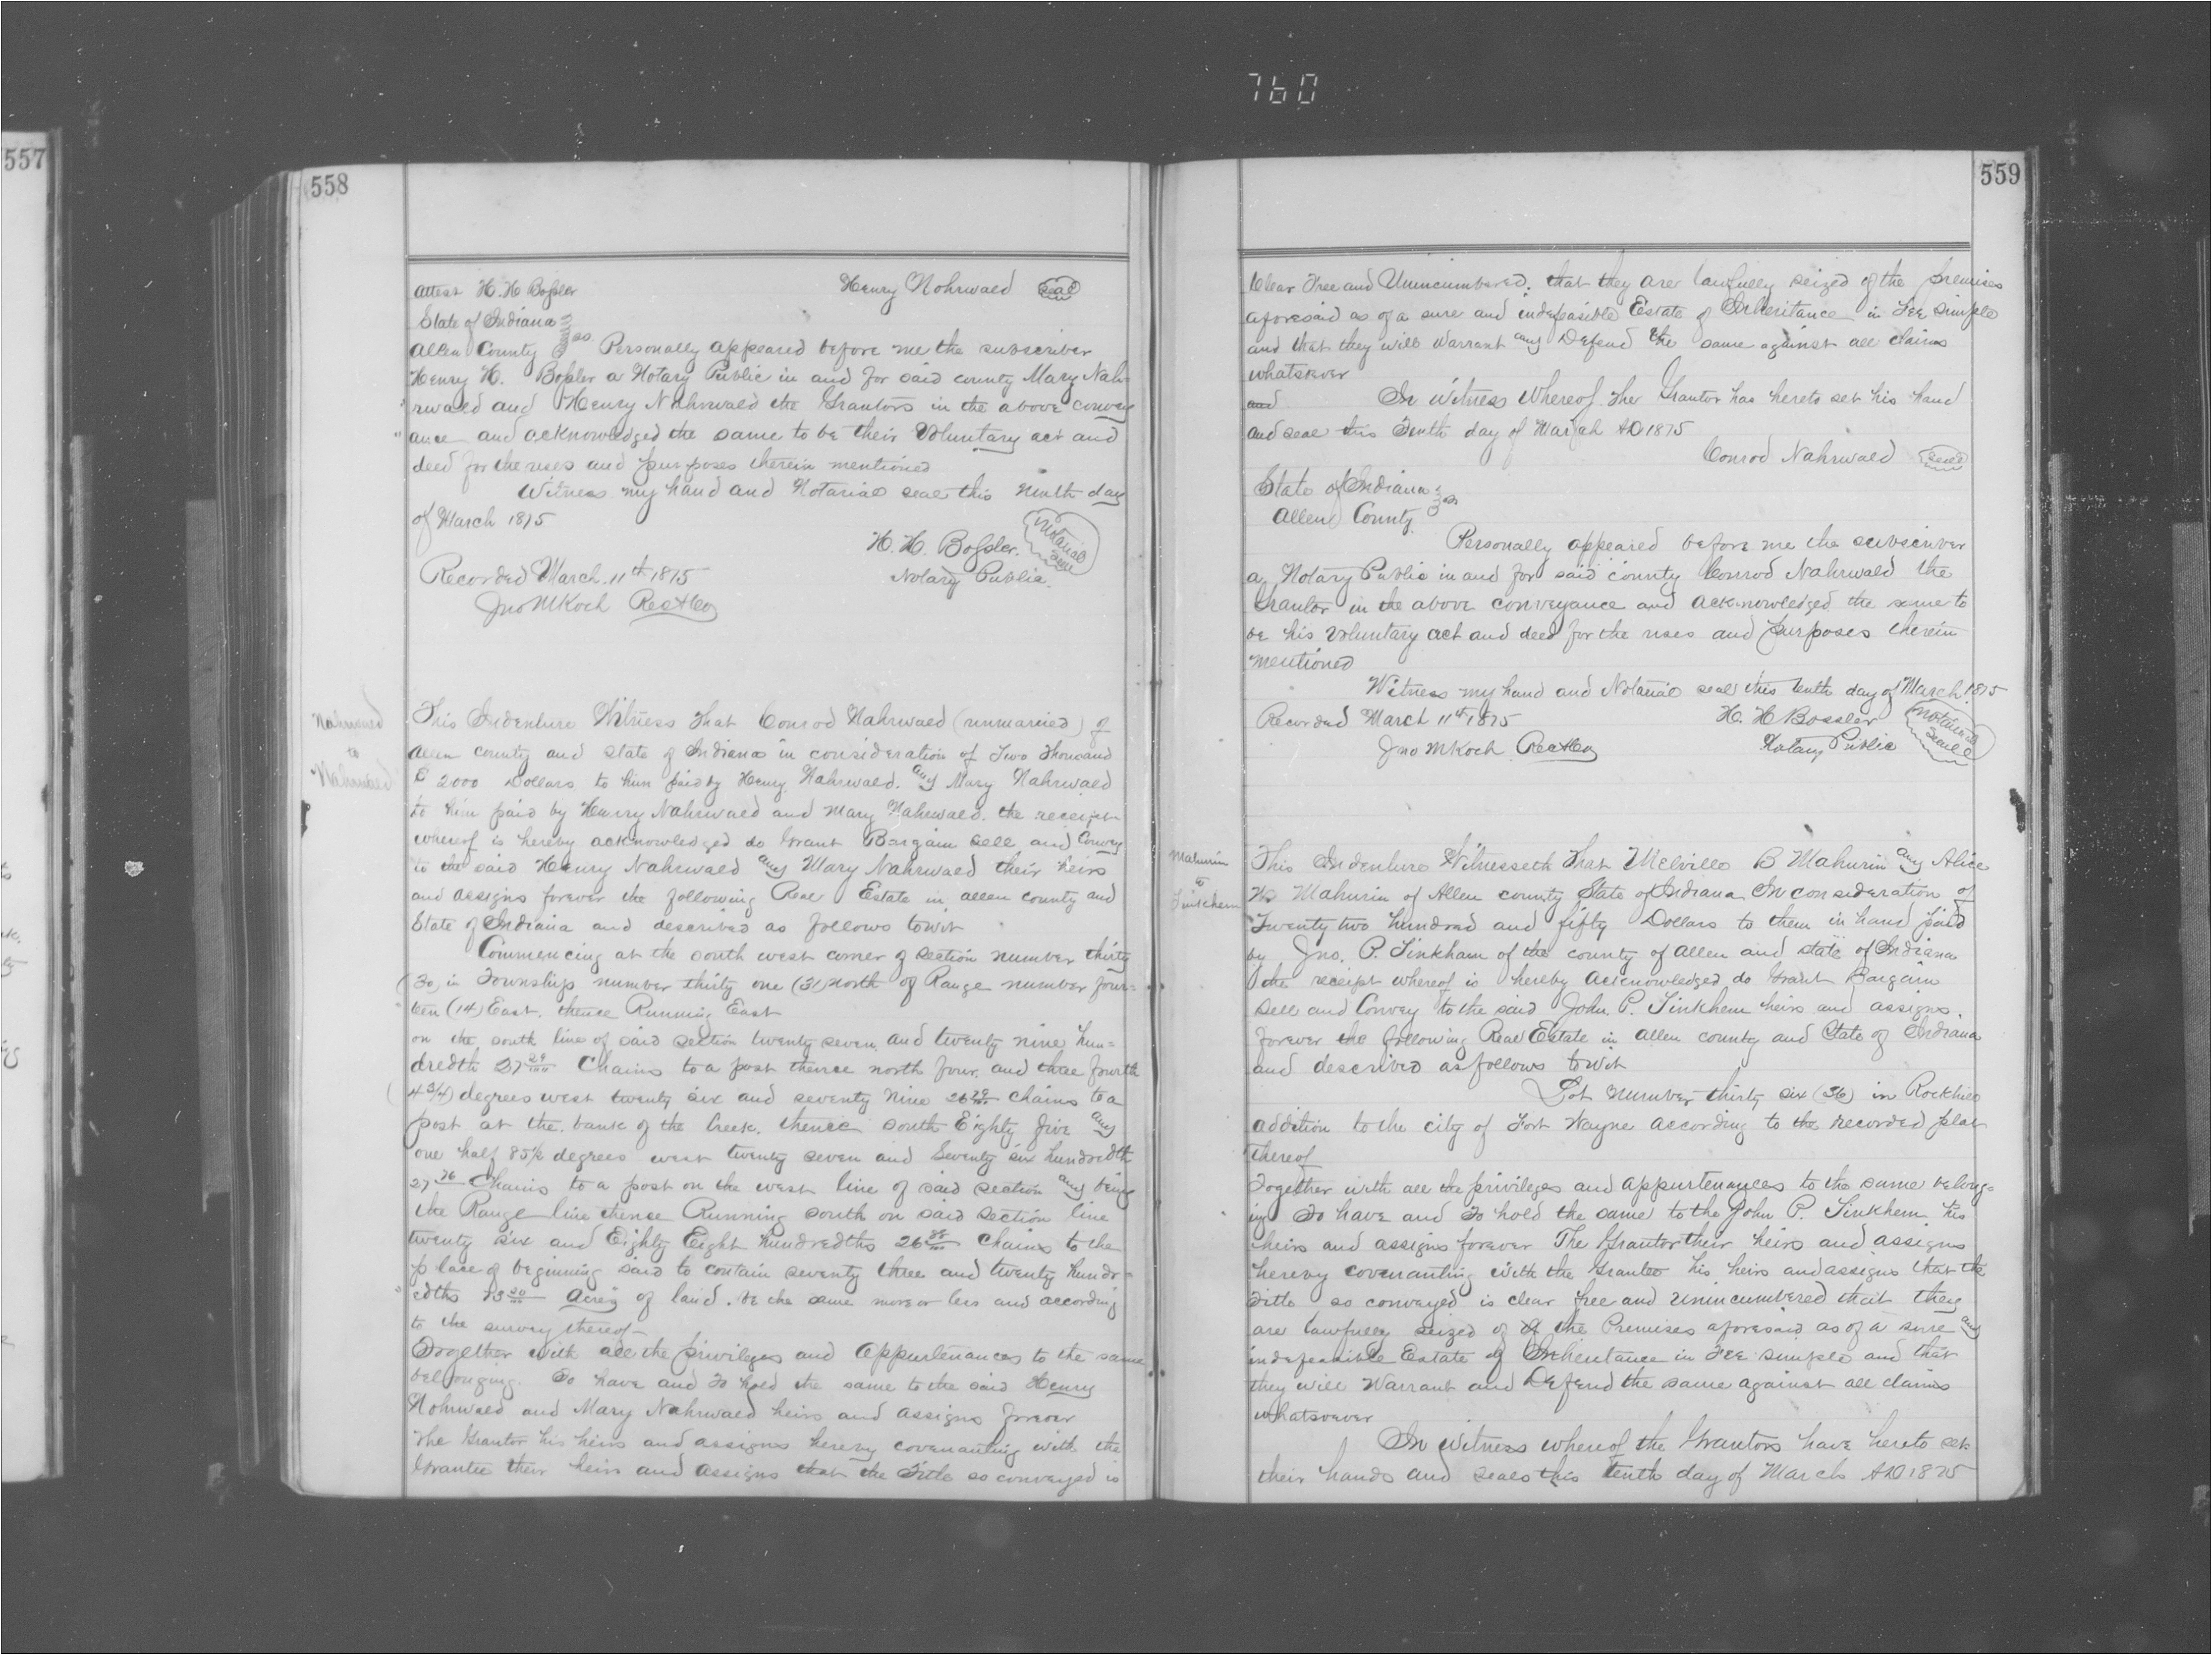 760
557
558
Attest H. H Bossler Henry Nohrwald seal
State of Indiana
Allen County ss. Personally appeared before me the subscriber
Henry H. Bossler a Notary Public in and for said county Mary Nah-
rwald and Henry Nahrwald the Grantors in the above convey
"ance and acknowledged the same to be their Voluntary act and
deed for the uses and purposes therein mentioned
Witness my hand and Notarial seal this Ninth day
of March 1875
H. H. Bossler. Notarial Seal
Notary Public.
Recorded March. 11th 1875
Jno M Koch RecACo
Nahrwald
to
Nahrwald
This Indenture Witness That Conrod Nahrwald (unmarried) of
Allen county and State of Indiana in consideration of Two Thousand
2000 Dollars to him paid by Henry Nahrwald. any Mary Nahrwald
to him paid by Henry Nahrwald and Mary Nahrwald. the receipt
whereof is hereby acknowledged do Grant Bargain sell and Convey
to the said Henry Nahrwald any Mary Nahrwald their heirs
and assigns forever the following Real Estate in allen county and
State of Indiana and described as follows towit
Commencing at the south west corner of section number thirty
(30) in Township number thirty one (31) North of Range number four=
"teen (14) East. thence Running East
on the south line of said section twenty seven and twenty nine hun=
dredth 27 29/100 Chains to a post thence north four. and three fourth
(4 3/4) degrees west twenty six and seventy nine 26 79/100 chains to a
post at the. bank of the Creek. thence south Eighty five any
one half 85½ degrees west twenty seven and Seventy six hundredth
27 76/100 Chains to a post on the west line of said section any being
the Range line thence Running south on said section line
twenty six and Eighty Eight hundredths 26 88/100 Chains to the
place of beginning said to contain seventy three and twenty hundr=
"edths 73 20/100 Acres of land. be the same more or less and according
to the survey thereof—
Together with all the privileges and Appurtenances to the same
belonging. To have and To hold the same to the said Henry
Nohrwald and Mary Nahrwald heirs and assigns forever
the Grantor his heirs and assigns hereby covenanting with the
Grantee their heirs and assigns that the Title so conveyed is
559
Clear Free and Unincumbered. that they are lawfully seized of the premises
aforesaid as of a sure and indefeasible Estate of Inheritance in Fee simple
and that they will Warrant any Defend the same against all claims
whatsoever
and In Witness Whereof The Grantor has hereto set his hand
and seal this Tenth day of March AD 1875
Conrod Nahrwald seal
State of Indiana
Allen County ss
Personally appeared before me the subscriber
a Notary Public in and for said county Conrod Nahrwald the
Grantor in the above conveyance and acknowledged the same to
be his voluntary act and deed for the uses and purposes therein
mentioned
Witness my hand and Notarial seal this tenth day of March 1875
Recorded March 11th 1875 H. H Bossler Notarial Seal
Jno M Koch RecACo Notary Public
Mahurin
to
Tinkham
This Indenture Witnesseth That Melville B Mahurin any Alice
Mahurin of Allen county State of Indiana In consideration of
Twenty two hundred and fifty Dollars to them in hand paid
by Jno. P. Tinkham of the county of Allen and state of Indiana
the receipt whereof is hereby acknowledged do Grant Bargain
sell and Convey to the said John P. Tinkhem heirs and assigns.
forever the following Real Estate in Allen county and State of Indiana
and described as follows towit
Lot Number thirty six (36) in Rockhill
addition to the city of Fort Wayne according to the recorded plat
thereof
Together with all the privileges and appurtenances to the same belong=
ing To have and To hold the same to the John P. Tinkhem his
heirs and assigns forever The Grantor their heirs and assigns
hereby covenanting with the Grantee his heirs and assigns that the
Title so conveyed is clear free and unincumbered that they
are lawfully seized of of the Premises aforesaid as of a sure any
indefeasible Estate of Inheritance in Fee simple and that
they will Warrant and Defend the same against all claims
whatsoever
In Witness whereof the Grantors have hereto set
their hands and seals this tenth day of March AD 1875